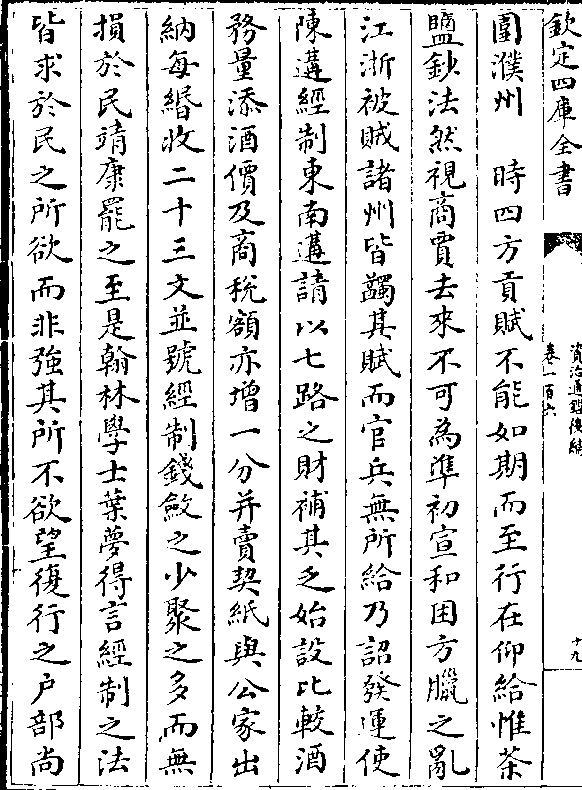 欽定四庫全書
資治通鑑後編
卷一百六
十九
圍濮州　時四方貢賦不能如期而至行在仰給惟茶
鹽鈔法然視商賈去來不可為準初宣和困方臘之亂
江浙被賊諸州皆蠲其賦而官兵無所給乃詔發運使
陳遘經制東南遘請以七路之財補其乏始設比較酒
務量添酒價及商稅額亦增一分并賣契紙與公家出
納每緡收二十三文並號經制錢斂之少聚之多而無
損於民靖康罷之至是翰林學士葉夢得言經制之法
皆求於民之所欲而非強其所不欲望復行之户部尚